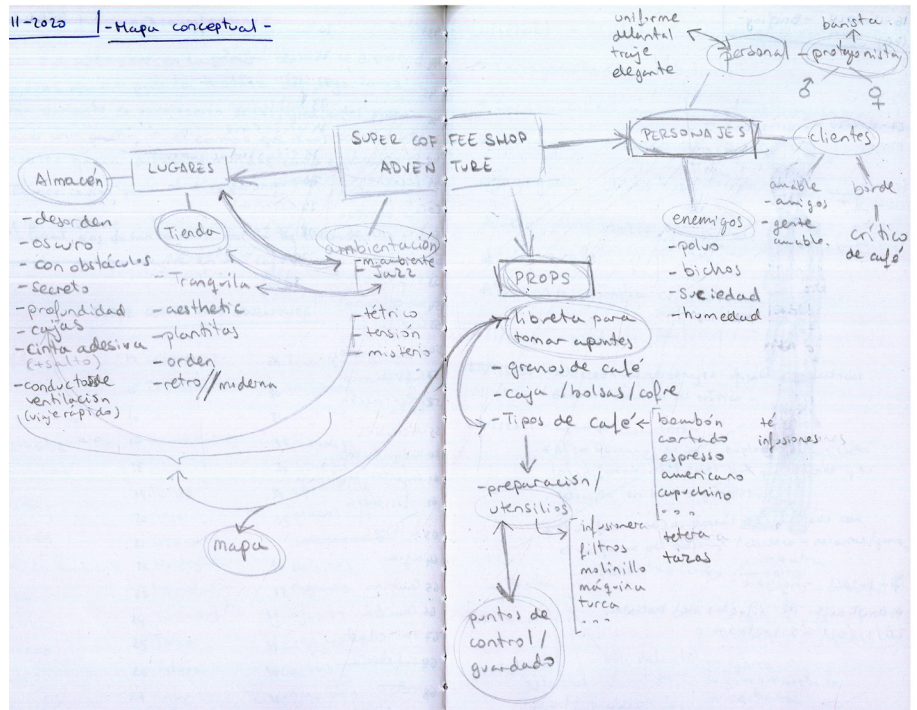 11-2020
- Mapa conceptual -
SUPER COFFEE SHOP
ADVENTURE
LUGARES
Almacén
- desorden
- oscuro
- con obstáculos
- secreto
- profundidad
- cajas
- cinta adesiva
(+salto)
- conductos de
ventilación
(viaje rápido)
Tienda
- Tranquila
- aesthetic
- plantitas
- orden
- retro//moderna
ambientación
m. ambiente
Jazz
- tétrico
- tensión
- misterio
mapa
PROPS
libreta para
tomar apuntes
- granos de café
- caja / bolsas / cofre
- Tipos de café
bombón
cortado
espresso
americano
capuchino
...
té
infusiones
- preparación /
utensilios
infusionera
filtros
molinillo
máquina
turca
...
tetera
tazas
puntos de
control /
guardado
PERSONAJES
personal
uniforme
delantal
traje
elegante
protagonista
barista
♂
♀
Clientes
amable
- amigos
- gente
amable.
borde
crítico
de café
enemigos
- polvo
- bichos
- suciedad
- humedad